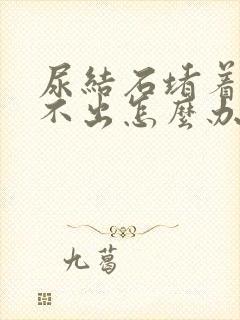 尿結石堵着
不出怎麼办
九葛